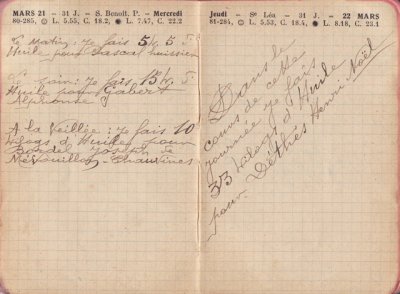 MARS 21 — 31 J. — S. Benoît, P. — Mercredi
80-285, L. 5.55, C. 18.2, L. 7.47, C. 22.1
Le Matin: je fais 5 h, 5
Huile pour Pascal huissier
Le soir: je fais 15 h,
Huile pour Gabert
Alphonse
A la Veillée: je fais 10
kilogs d'Huile pour
Bordel Joseph de
Mévouillon-Chauvines
Jeudi — Se Léa — 31 J. — 22 MARS
81-284, L. 5.53, C. 18.4, L. 8.18, C. 23.2
Dans le
cours de cette
journée je fais
33 kilogs d'Huile
pour Déthès Henri Noël